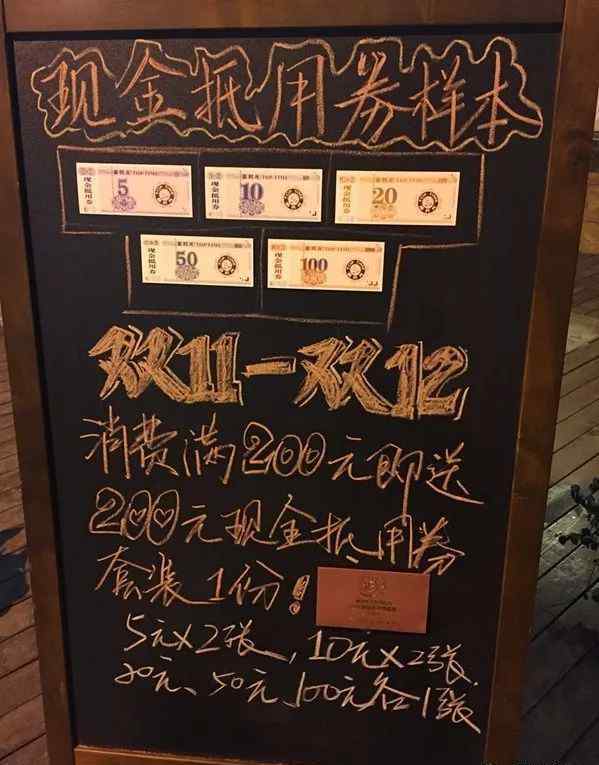 现金抵用券样本
现金抵用券 5
现金抵用券 10
现金抵用券 20
现金抵用券 50
现金抵用券 100
双11-双12
消费满200元即送
200元现金抵用券
套装1份!
5元×2张,10元×2张,
20元、50元、100元各1张